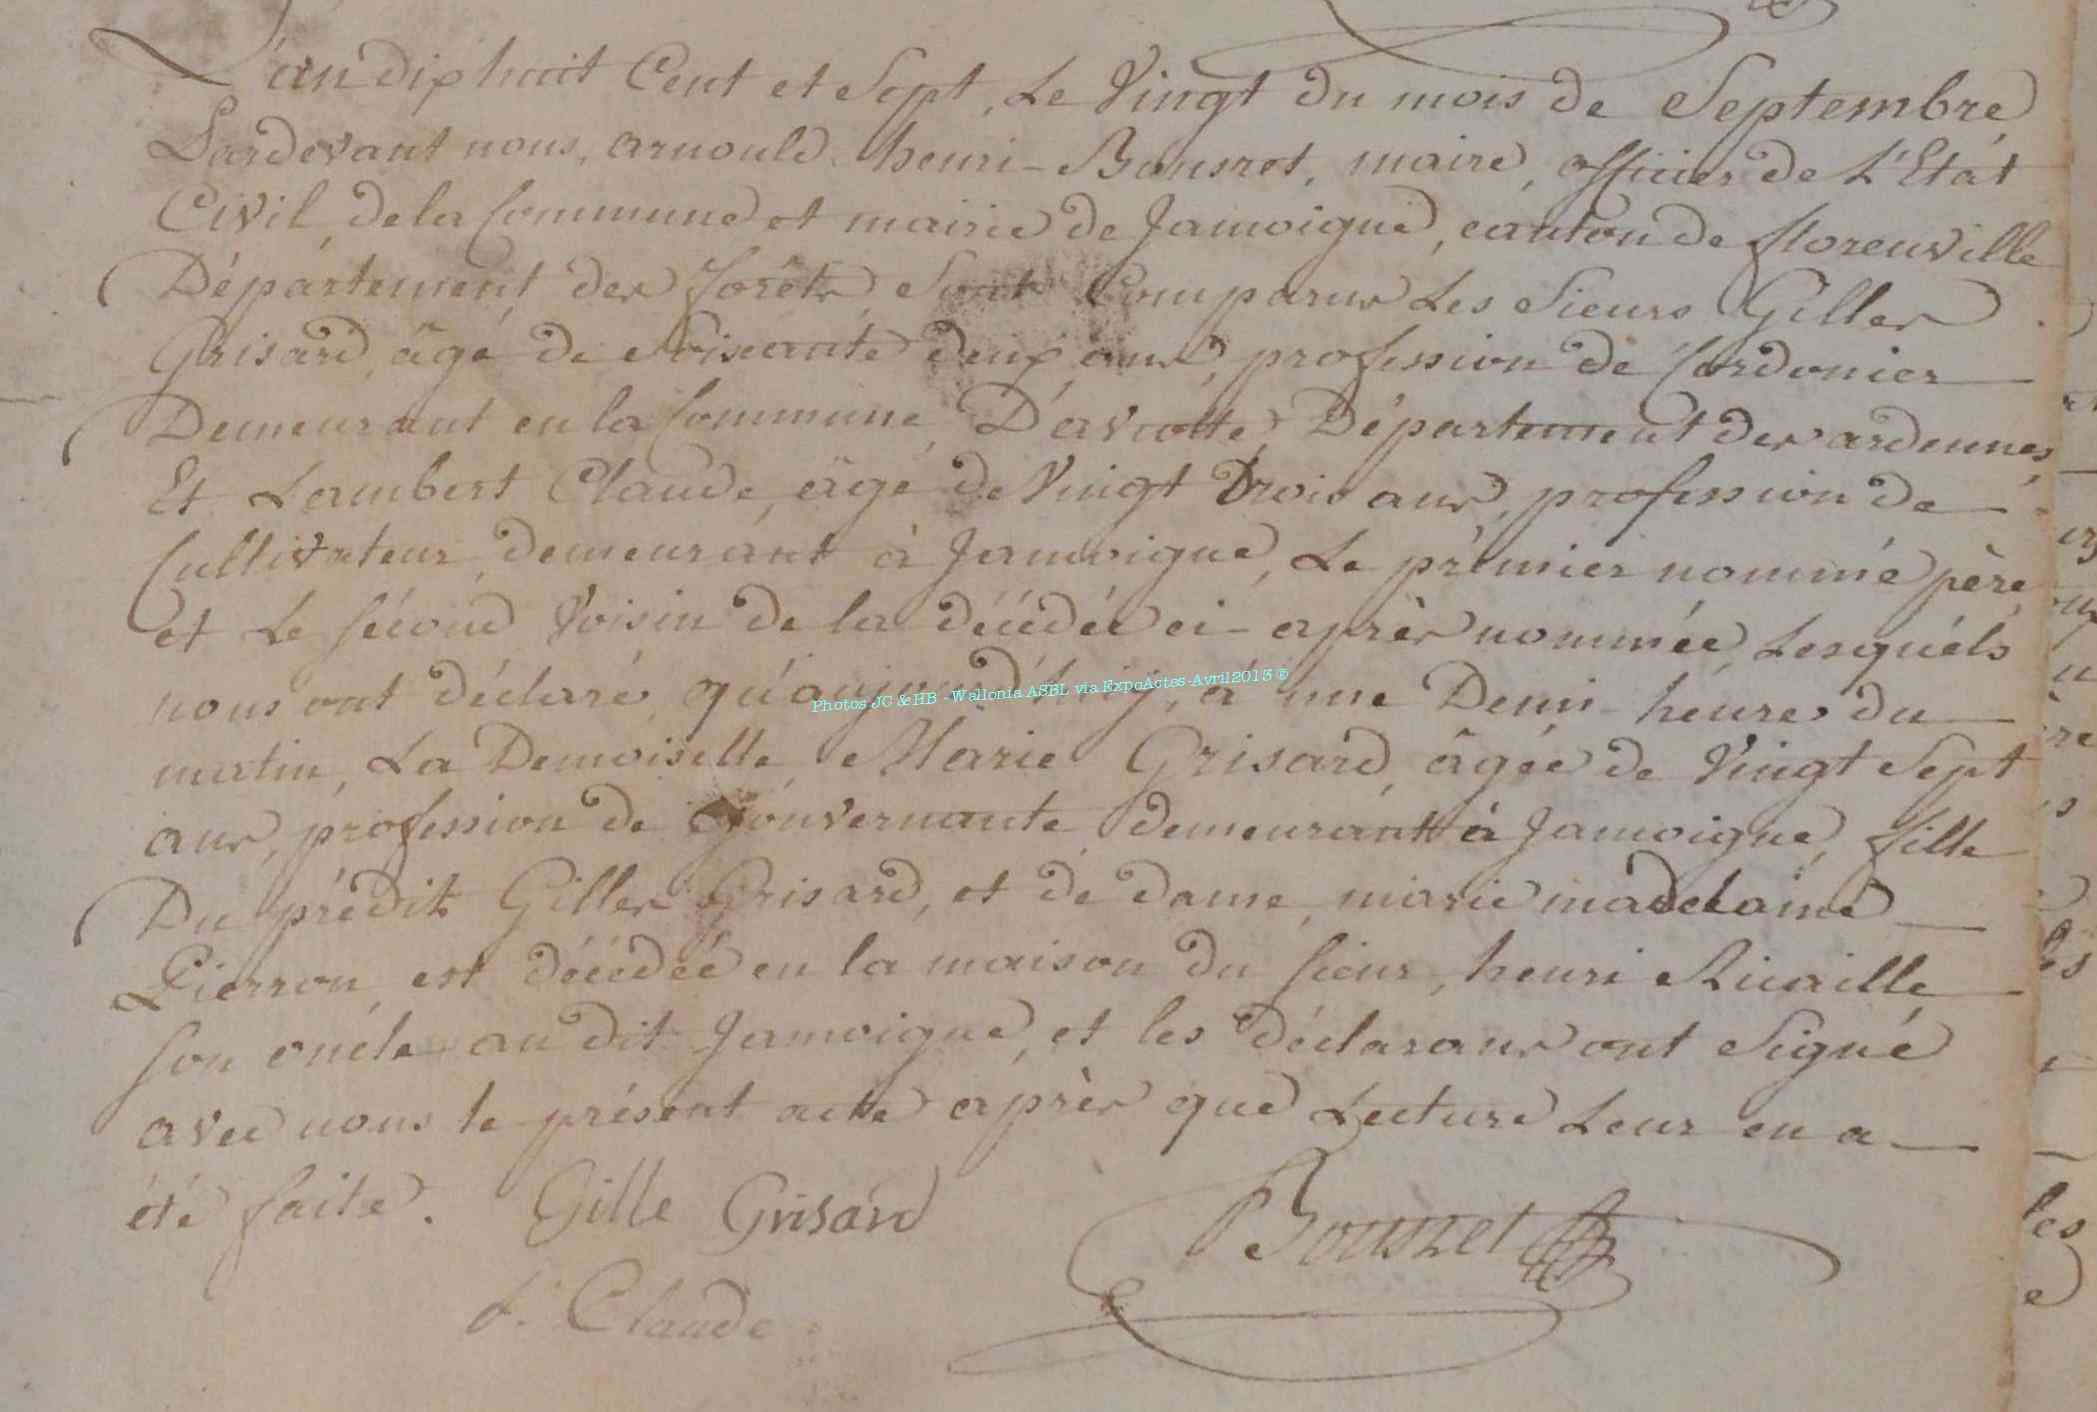 L'an dix huit Cent et Sept, Le Vingt du mois de Septembre
Pardevant nous, arnould henri-Bousret, maire, officier de L'Etat
Civil, de la Commune et mairie de Jamoigne, canton de florenville
Département des forêts, Sont Comparus Les Sieurs Gilles
Grisard, âgé de soixante deux ans, profession de Cordonier
Demeurant en la Commune, Département des ardennes,
Et Lambert Claude, âgé de Vingt Trois ans, profession de
Cultivateur, demeurant à Jamoigne, Le prémier nommé père
et Le sécond Voisin de la décédée ci-après nommée, Lesquéls
nous ont déclaré, qu'aujourd'huij, à une Demi-héure du
matin, La Demoiselle, Marie Grisard, âgée de Vingt Sept
ans, profession de Gouvernante, demeurant à Jamoigne, fille
Du prédit Gilles Grisard, et de dame, marie madelaine
Pierron, est décédée en la maison du sieur, henri Ricaille
son oncle au dit Jamoigne, et les déclarans ont Signé
avec nous le présent acte après que Lecture Leur en a
été faite. Gille Grisard
Bousret
L. Claude
Photos JC & HB - Wallonia ASBL via ExpoActes-Avril2013 ®